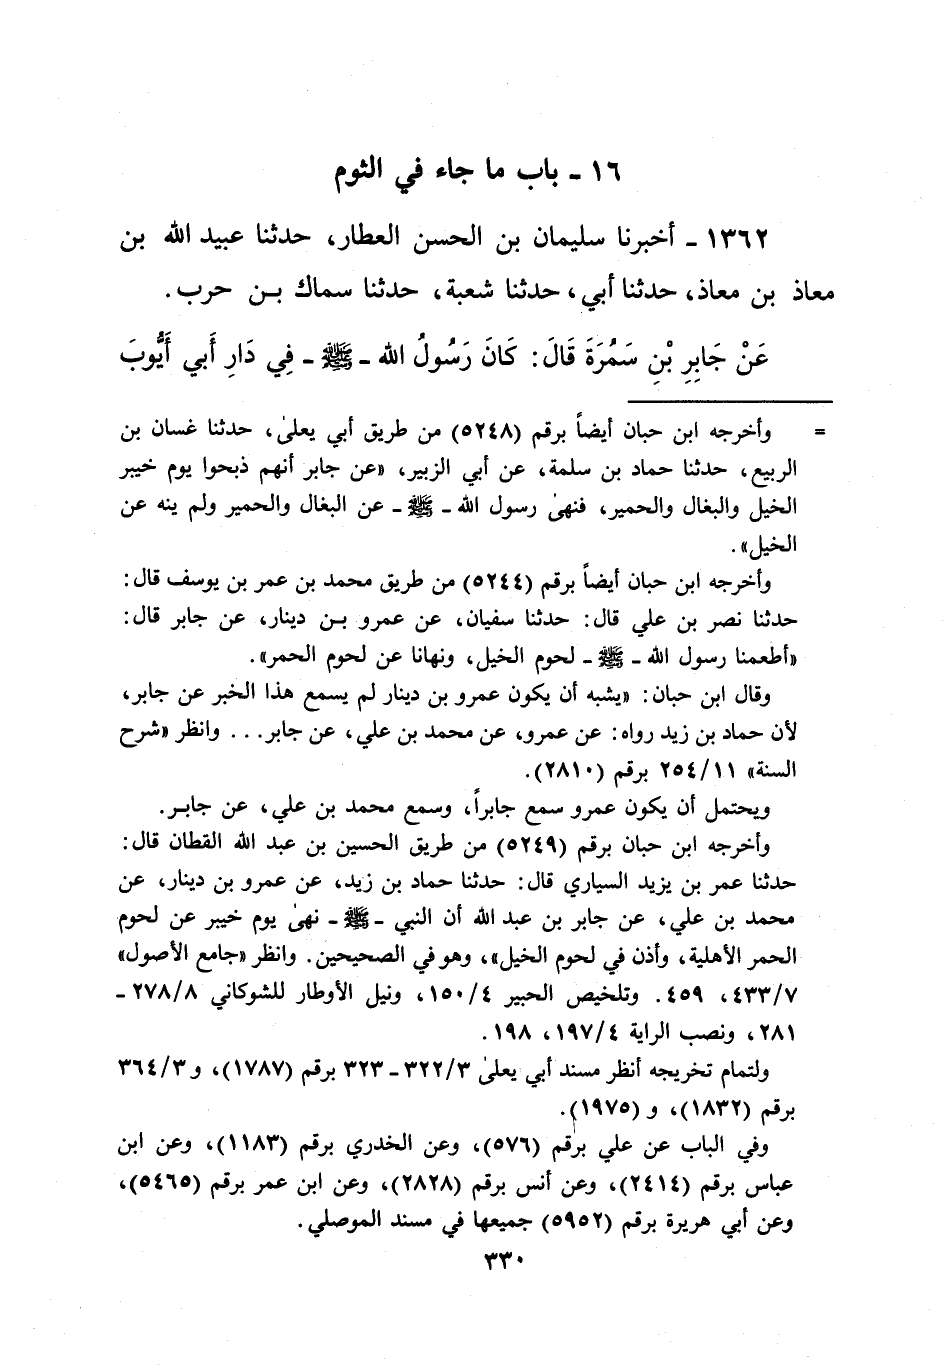 ١٦ - باب ما جاء في الثوم
١٣٦٢ - أخبرنا سليمان بن الحسن العطار، حدثنا عبيد الله بن
معاذ بن معاذ، حدثنا أبي، حدثنا شعبة، حدثنا سماك بن حرب.
عَنْ جَابِرِ بْنِ سَمُرَةَ قَالَ: كَانَ رَسُولُ الله - ﷺ - فِي دَارِ أَبي أَيُّوبَ
= وأخرجه ابن حبان أيضاً برقم (٥٢٤٨) من طريق أبي يعلىٰ، حدثنا غسان بن
الربيع، حدثنا حماد بن سلمة، عن أبي الزبير، «عن جابر أنهم ذبحوا يوم خيبر
الخيل والبغال والحمير، فنهىٰ رسول الله - ﷺ - عن البغال والحمير ولم ينه عن
الخيل».
وأخرجه ابن حبان أيضاً برقم (٥٢٤٤) من طريق محمد بن عمر بن يوسف قال:
حدثنا نصر بن علي قال: حدثنا سفيان، عن عمرو بن دينار، عن جابر قال:
«أطعمنا رسول الله - ﷺ - لحوم الخيل، ونهانا عن لحوم الحمر».
وقال ابن حبان: «يشبه أن يكون عمرو بن دينار لم يسمع هذا الخبر عن جابر،
لأن حماد بن زيد رواه: عن عمرو، عن محمد بن علي، عن جابر... وانظر «شرح
السنة» ٢٥٤/١١ برقم (٢٨١٠).
ويحتمل أن يكون عمرو سمع جابراً، وسمع محمد بن علي، عن جابر.
وأخرجه ابن حبان برقم (٥٢٤٩) من طريق الحسين بن عبد الله القطان قال:
حدثنا عمر بن يزيد السياري قال: حدثنا حماد بن زيد، عن عمرو بن دينار، عن
محمد بن علي، عن جابر بن عبد الله أن النبي - ﷺ - نهىٰ يوم خيبر عن لحوم
الحمر الأهلية، وأذن في لحوم الخيل»، وهو في الصحيحين. وانظر «جامع الأصول»
٤٣٣/٧، ٤٥٩. وتلخيص الحبير ١٥٠/٤، ونيل الأوطار للشوكاني ٢٧٨/٨ -
٢٨١، ونصب الراية ١٩٧/٤، ١٩٨.
ولتمام تخريجه أنظر مسند أبي يعلىٰ ٣٢٢/٣ - ٣٢٣ برقم (١٧٨٧)، و ٣٦٤/٣
برقم (١٨٣٢)، و (١٩٧٥).
وفي الباب عن علي برقم (٥٧٦)، وعن الخدري برقم (١١٨٣)، وعن ابن
عباس برقم (٢٤١٤)، وعن أنس برقم (٢٨٢٨)، وعن ابن عمر برقم (٥٤٦٥)،
وعن أبي هريرة برقم (٥٩٥٢) جميعها في مسند الموصلي.
٣٣٠